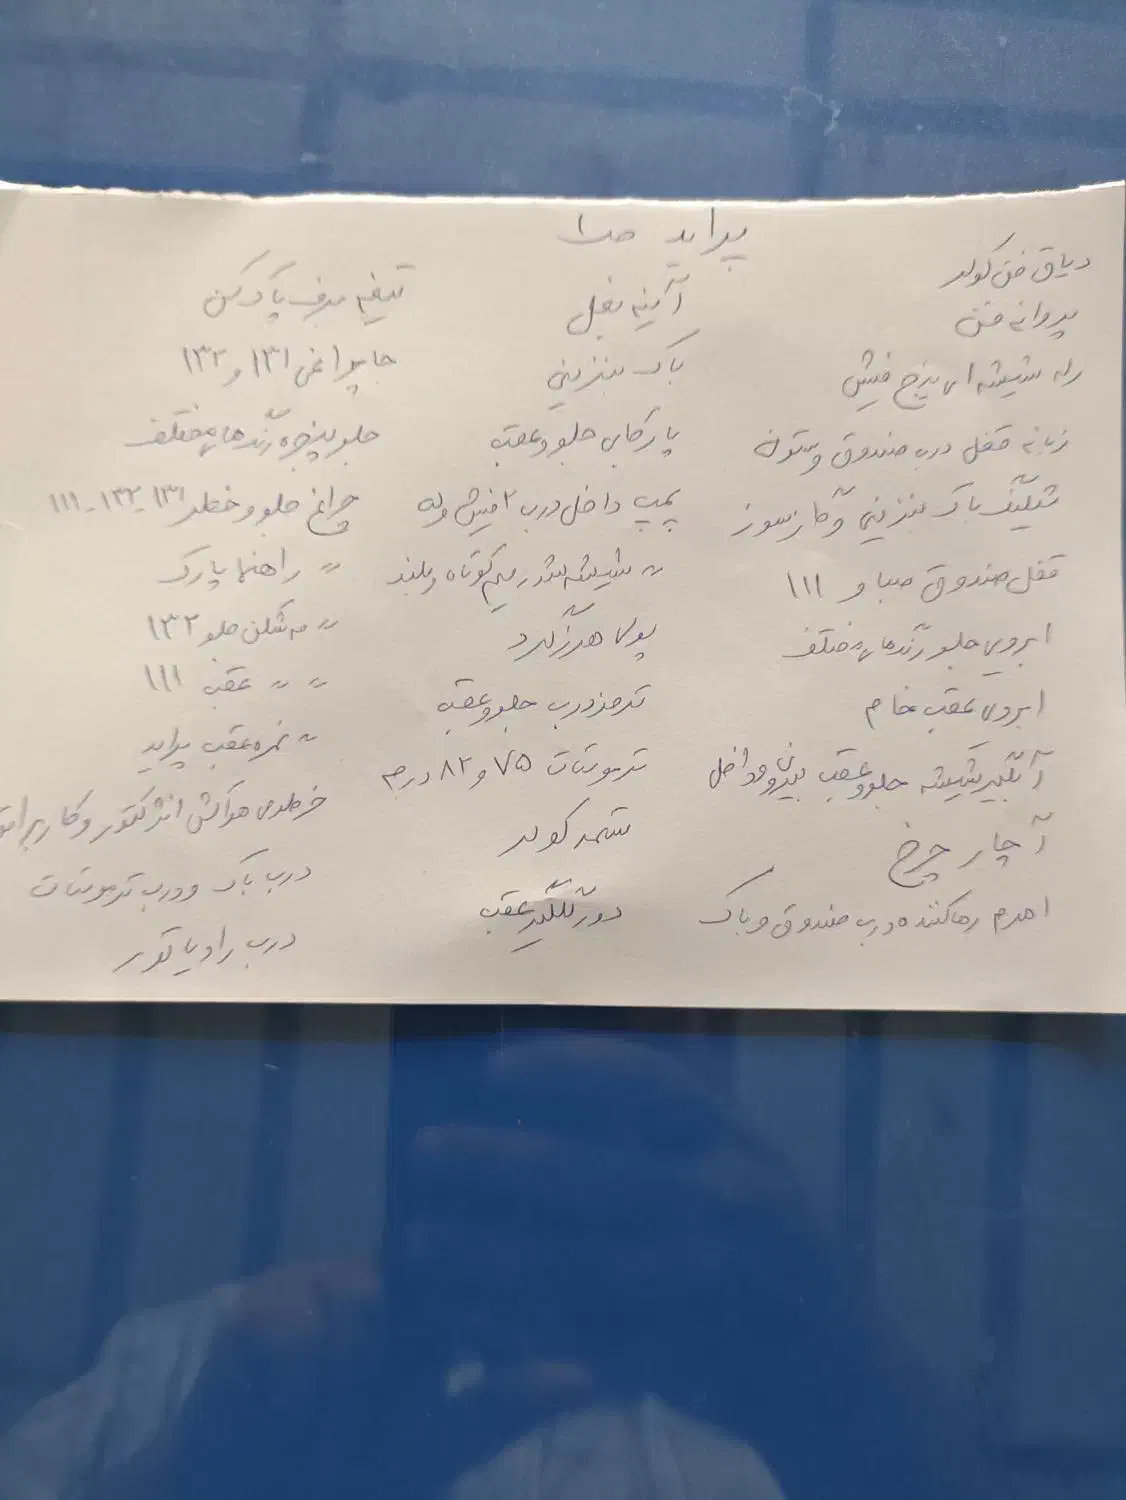 پراید صبا
دیاق فن کولر
پروانه فن
رله شیشه ای پنج فیش
زبانه قفل درب صندوق وستون
شیلنگ باک بنزینی وگازسوز
قفل صندوق صبا و ۱۱۱
ابرویی جلو رنگهای مختلف
ابروی عقب خام
آبگیر شیشه جلو وعقب بیرون وداخل
آچار چرخ
اهرم رهاکننده درب صندوق وباک
آئینه بغل
باک بنزینی
پارکابی جلو وعقب
پمپ داخل درب ۲ فیش وله
〃 شیشه شور سیم کوتاه وبلند
پولی هرزگرد
ترمز درب جلو وعقب
ترموستات ۷۵ و ۸۲ درجه
شمد کولر
دور گلگیر عقب
تیغه برف پاک کن
جاچراغی ۱۳۱ و ۱۳۲
جلو پنجره رنگهای مختلف
چراغ جلو و خطر ۱۳۱-۱۳۲-۱۱۱
〃 راهنما پارک
〃 مه شکن جلو ۱۳۲
〃 〃 عقب ۱۱۱
〃 نمره عقب پراید
خرطومی هواکش انژکتور و کاربراتور
درب باک ودرب ترموستات
درب رادیاتور